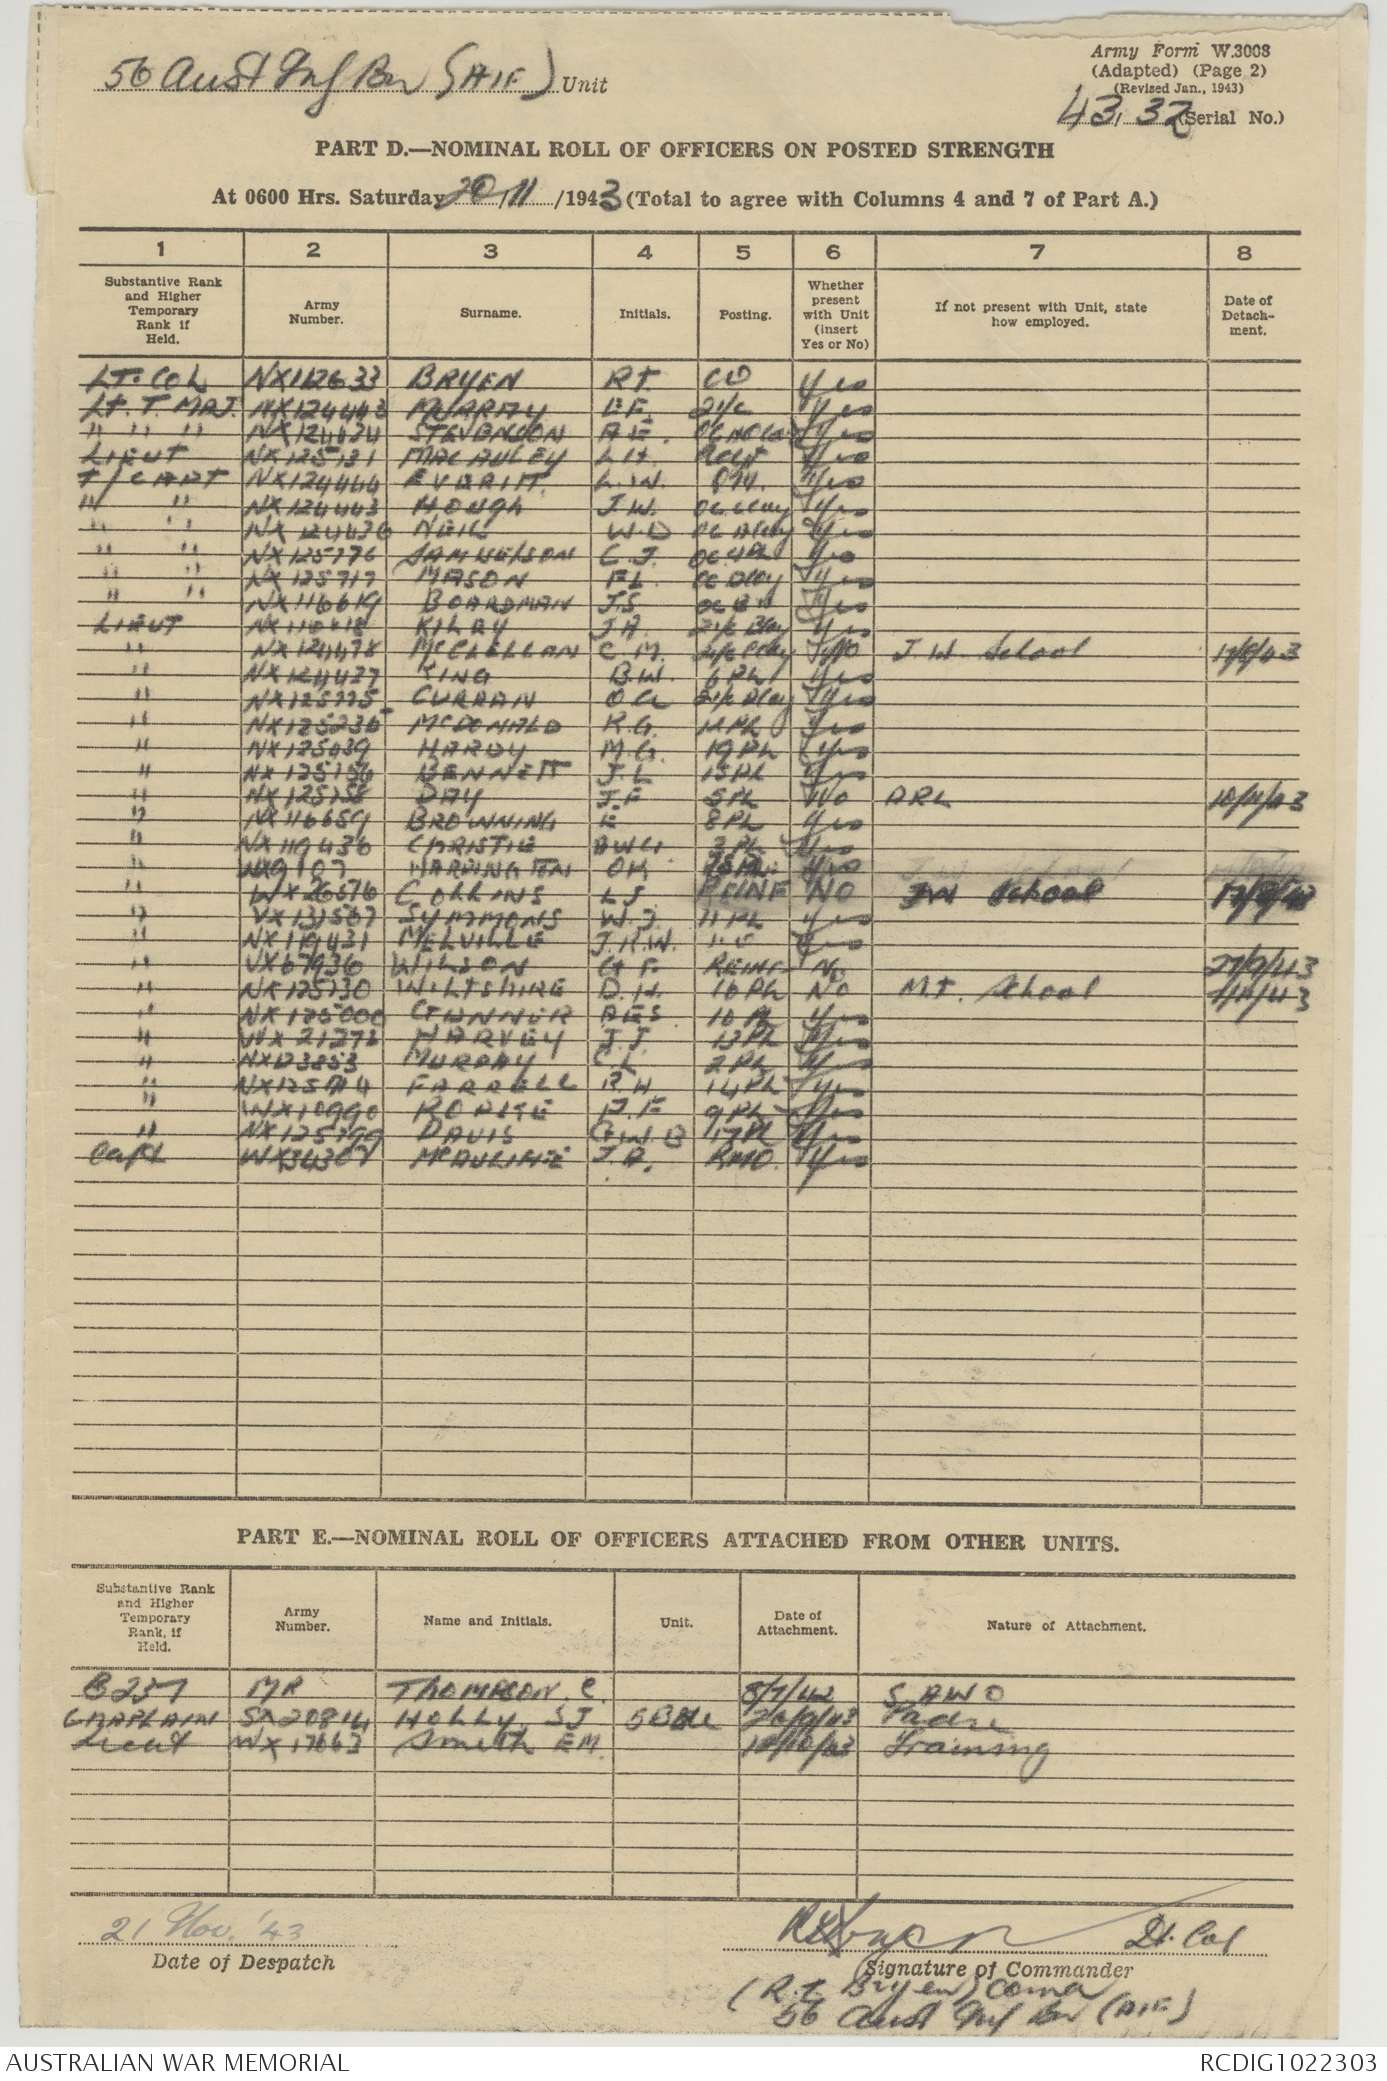 56 Aust Inf Bn (AIF) Unit
Army Form W.3008
(Adapted) (Page 2)
(Revised Jan., 1943)
43.32 (Serial No.)
PART D.—NOMINAL ROLL OF OFFICERS ON POSTED STRENGTH
At 0600 Hrs. Saturday 20/11/1943 (Total to agree with Columns 4 and 7 of Part A.)
1 2 3 4 5 6 7 8
Substantive Rank and Higher Temporary Rank if Held.
Army Number.
Surname.
Initials.
Posting.
Whether present with Unit (insert Yes or No)
If not present with Unit, state how employed.
Date of Detachment.
LT. COL NX112633 BRYEN R.T. CO Yes
Lt. T. MAJ. NX124443 MURRAY E.F. 2i/c Yes
" " " NX124434 STEVENSON A E. Yes
LIEUT NX125131 MACAULEY L H. Yes
T/CAPT NX124444 EVERITT L.W. Yes
" " NX124443 HOUGH J.W. OC CCoy Yes
" " NX124436 NEIL W.D OC ACoy Yes
" " NX125776 SAMUELSON C.J. OC 4PL Yes
" " NX125717 MASON F.L. OC DCoy Yes
" " NX116619 BOARDMAN J.S OC B " Yes
LIEUT KILBY J.A. 2i/c BCoy Yes
" NX124478 McCLELLAN C.M. 2i/c CCoy NO J.W. School 17/8/43
" NX124437 KING B.W. 6 PL Yes
" NX125775 CURRAN O G 2i/c DCoy Yes
" NX125236 McDONALD K.G. 12 PL Yes
" NX125039 HARDY M.G. 19 PL Yes
" NX125156 BENNETT J.L 15 PL Yes
" NX125158 DAY J.F 5 PL No ARL 10/11/43
" NX116659 BROWNING E 8 PL Yes
" NX119436 CHRISTIE AWG. 3 PL Yes
" HARRINGTON O H Yes
" WX26576 COLLINS L J REINF NO JW School 17/8/43
" VX131567 SYMMONS W.J. 11 PL Yes
" NX119431 MELVILLE J.R.W. Yes
" VX67936 WILSON G F. REINF No 27/9/43
" NX125130 WILTSHIRE D.H. 16 PL No M.T. School
" NX125000 GUNNER A E S. 10 PL Yes
" WX21272 HARVEY J.J. 13 PL Yes
" NX123853 MURRAY C L 2 PL Yes
" FARRELL R.H 14 PL Yes
" WX10990 P.F 9 PL Yes
" NX125799 DAVIS G.W.B 17 PL Yes
Capt WX34307 McAULIFFE J.A. RMO. Yes
PART E.—NOMINAL ROLL OF OFFICERS ATTACHED FROM OTHER UNITS.
Substantive Rank and Higher Temporary Rank, if Held.
Army Number.
Name and Initials.
Unit.
Date of Attachment.
Nature of Attachment.
B237 MR THOMPSON C. 8/7/42 S AWO
CHAPLAIN SX20814 HOLLY SJ 5BDE 20/9/43 Padre
Lieut WX17663 Smith EM. 12/10/43 Training
21 Nov. '43
Date of Despatch
Lt. Col
Signature of Commander
(R.T. Bryen) Comd
56 Aust Inf Bn (AIF)
AUSTRALIAN WAR MEMORIAL RCDIG1022303